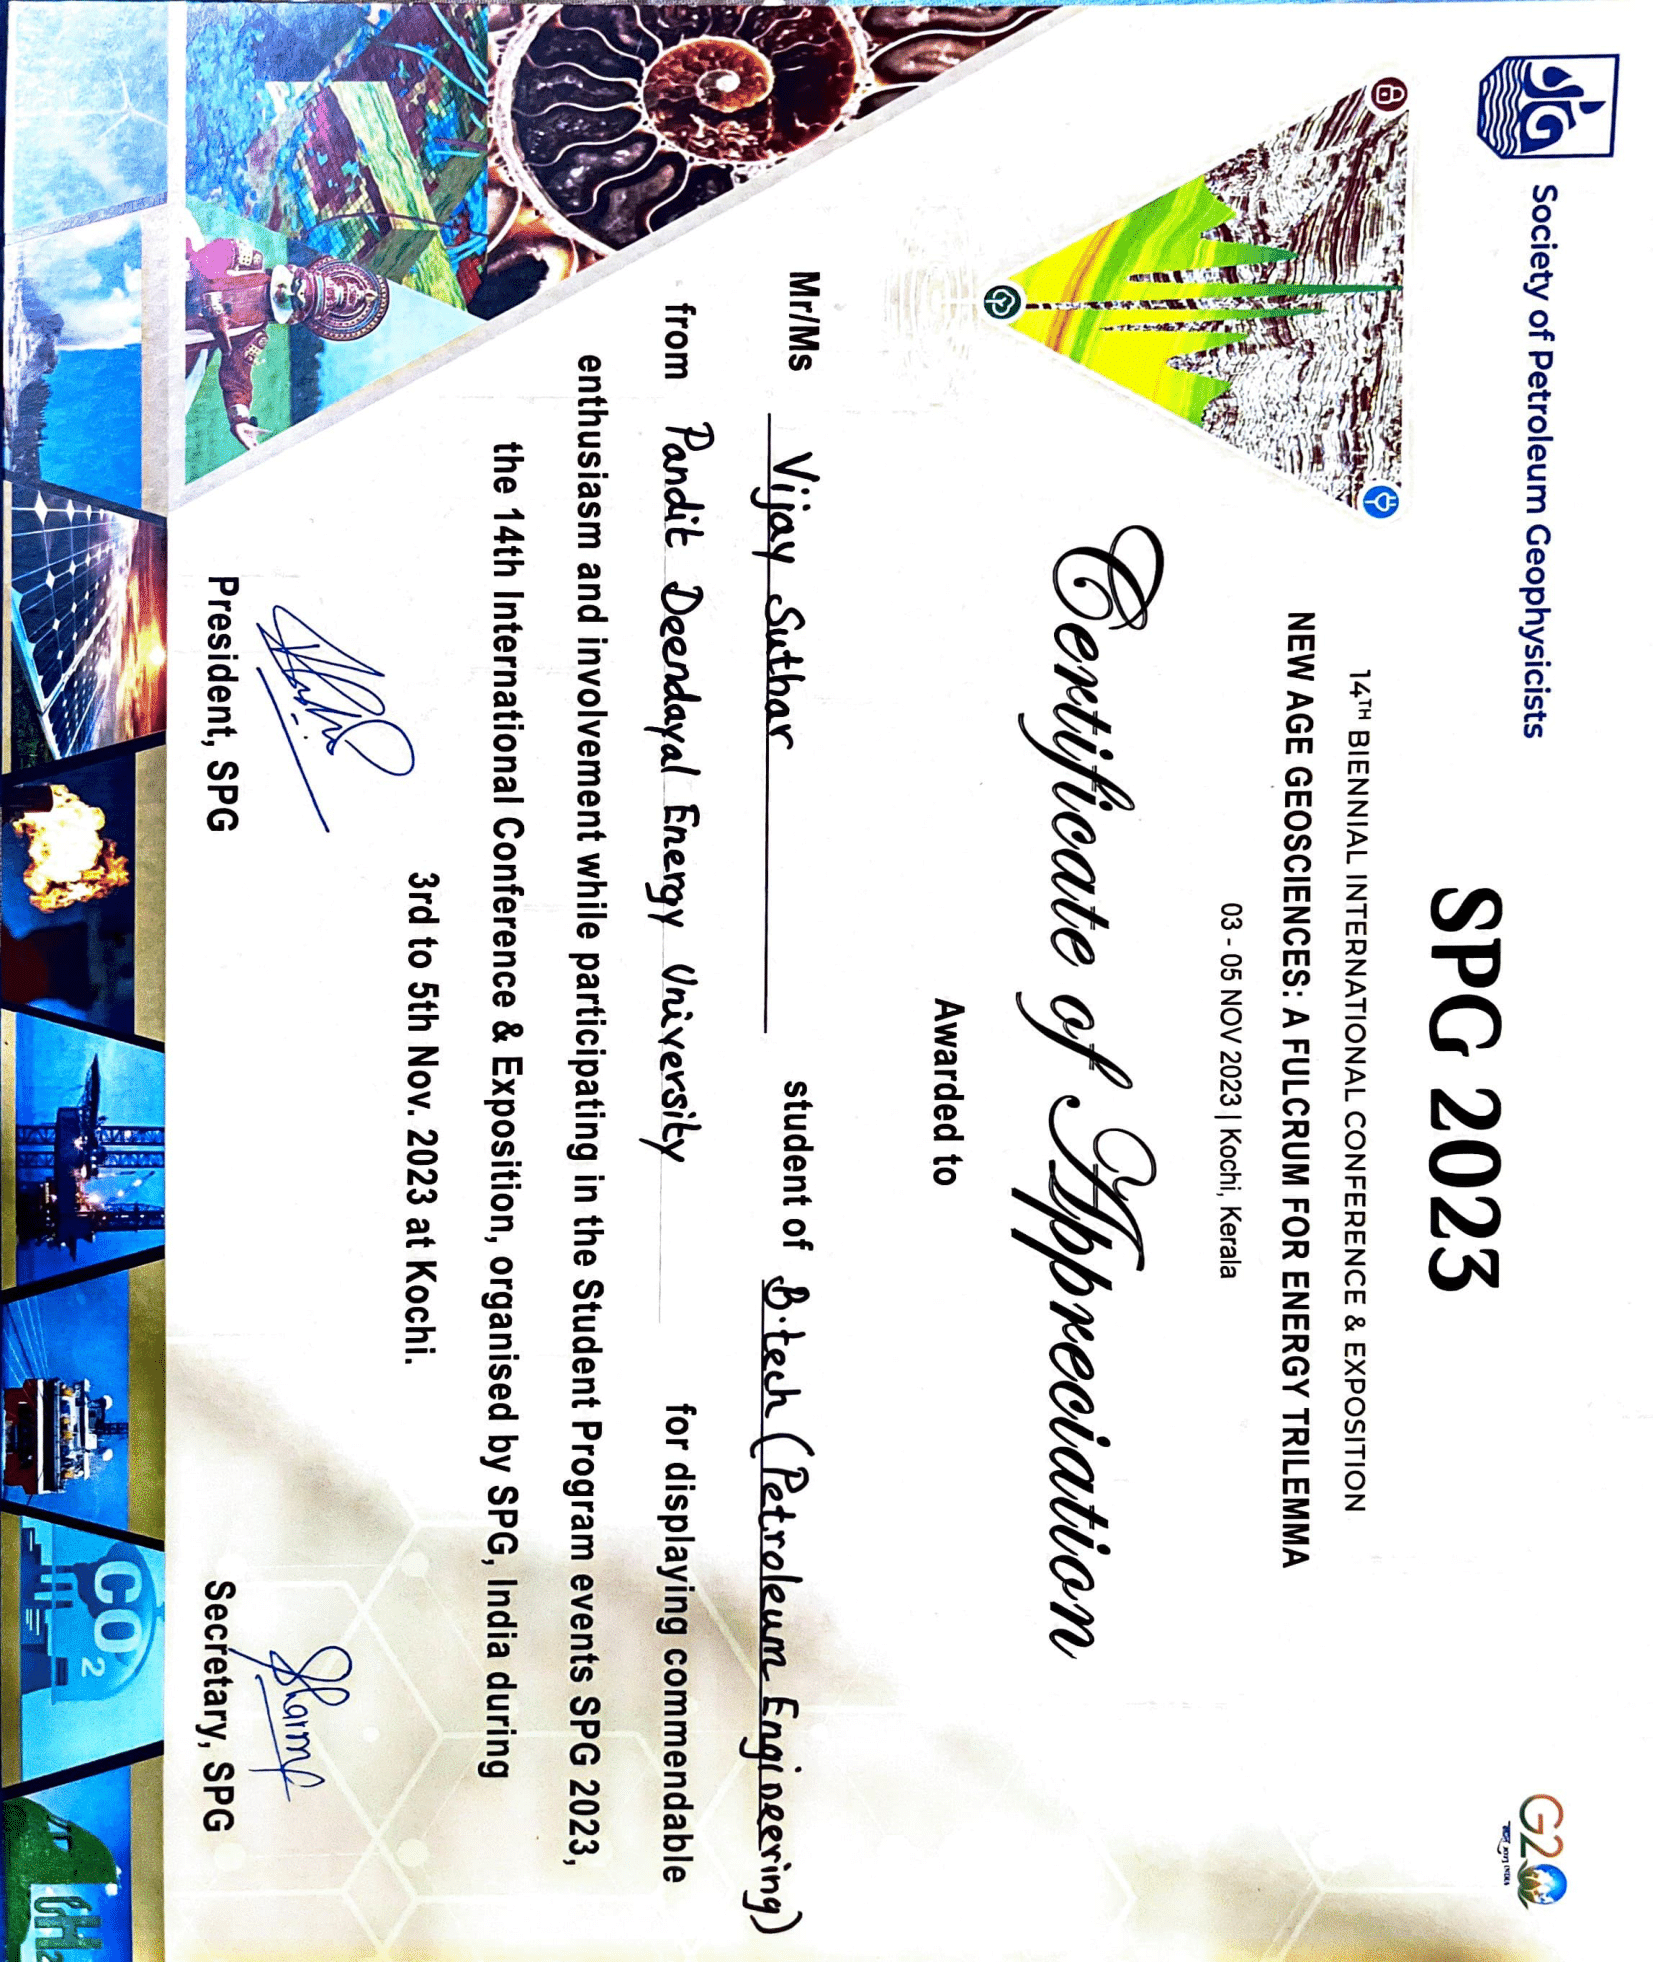 Society of Petroleum Geophysicists
SPG 2023
14TH BIENNIAL INTERNATIONAL CONFERENCE & EXPOSITION
NEW AGE GEOSCIENCES: A FULCRUM FOR ENERGY TRILEMMA
03 - 05 NOV 2023 | Kochi, Kerala
G20
Certificate of Appreciation
Awarded to
Mr/Ms Vijay Suthar student of B.tech (Petroleum Engineering)
from Pandit Deendayal Energy University for displaying commendable
enthusiasm and involvement while participating in the Student Program events SPG 2023,
the 14th International Conference & Exposition, organised by SPG, India during
3rd to 5th Nov. 2023 at Kochi.
Sharma
President, SPG
Secretary, SPG
CO2
H2